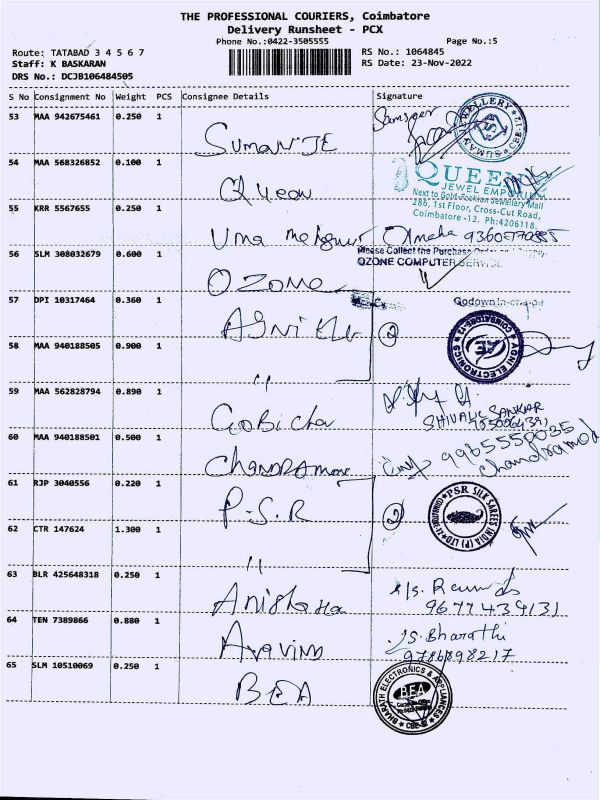 THE PROFESSIONAL COURIERS, Coimbatore
Delivery Runsheet - PCX
Phone No.:0422-3505555
Page No.:5
Route: TATABAD 3 4 5 6 7
RS No.: 1064845
Staff: K BASKARAN
RS Date: 23-Nov-2022
DRS No.: DCJB106484505
S No Consignment No Weight PCS Consignee Details Signature
53 MAA 942675461 0.250 1
54 MAA 568326852 0.100 1 Queen
QUEEN
JEWEL EMPORIUM
Next to Gold Fashion Jewellery Mall
286, 1st Floor, Cross-Cut Road,
Coimbatore -12. Ph:4206118.
55 KRR 5567655 0.250 1 Uma
56 SLM 308032679 0.600 1 OZONE
Please Collect the Purchase
OZONE COMPUTER SERVICE
57 DPI 10317464 0.360 1 AGNI
Godown In-charge
AGNI ELECTRONICS
AE
2
58 MAA 940188505 0.900 1 "
59 MAA 562828794 0.890 1
SHIVALIC SANKAR
60 MAA 940188501 0.500 1
9965558035
61 RJP 3040556 0.220 1 P.S.R
PSR SILK SAREES INDIA (P) LTD
2
62 CTR 147624 1.300 1 "
63 BLR 425648318 0.250 1
9677439131
64 TEN 7389866 0.880 1 Aravind
S. Bharathi
65 SLM 10510069 0.250 1 BEA
BHARATH ELECTRONICS & APPLIANCES
BEA